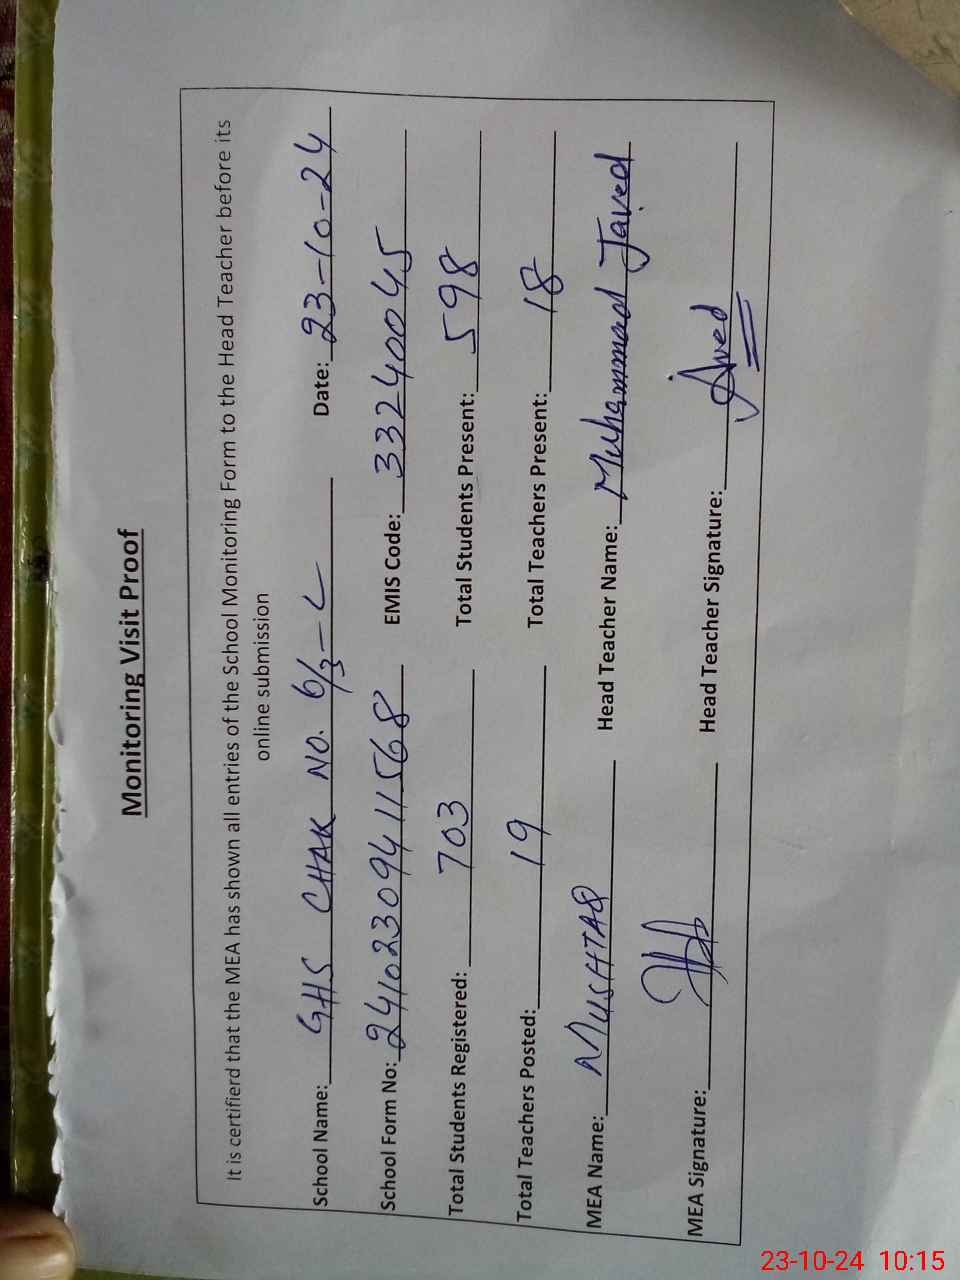 Monitoring Visit Proof
It is certifierd that the MEA has shown all entries of the School Monitoring Form to the Head Teacher before its
online submission
School Name: GHS CHAK NO. 6/3-L Date: 23-10-24
School Form No: 241023094111568 EMIS Code: 33240045
Total Students Registered: 703 Total Students Present: 598
Total Teachers Posted: 19 Total Teachers Present: 18
MEA Name: MUSHTAQ Head Teacher Name: Muhammad Javed
MEA Signature: Head Teacher Signature: Javed
23-10-24 10:15